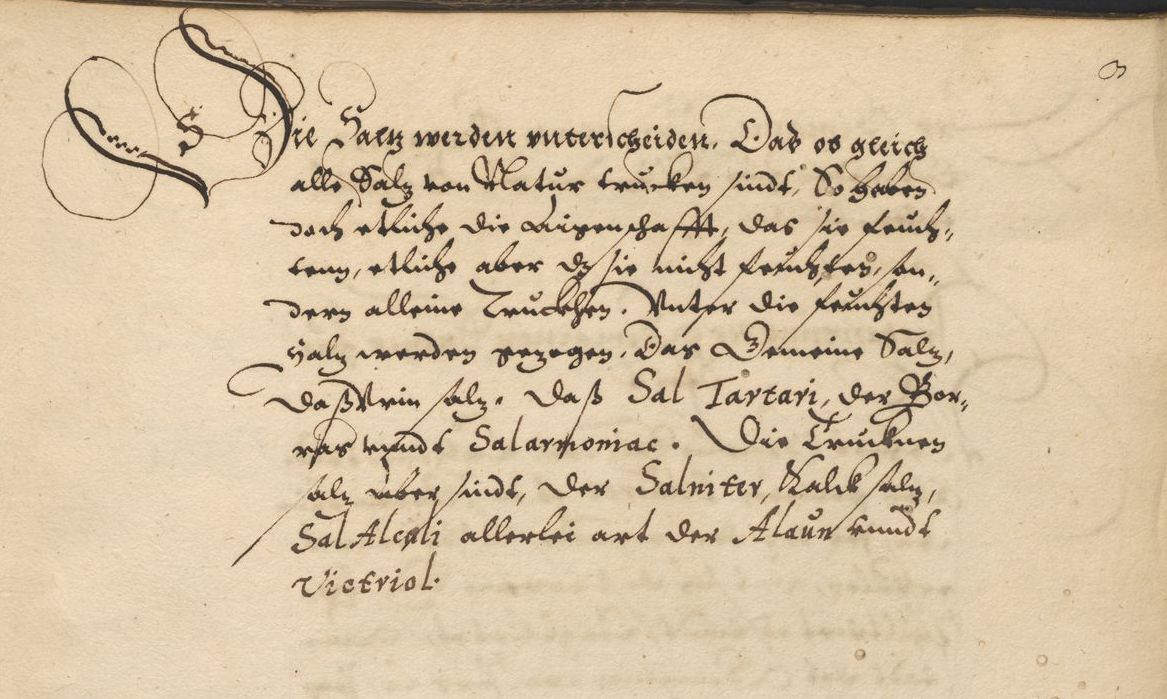 3
Die Saltz werden vnterscheiden. Das ob gleich
alle Saltz von Natur trucken sindt, So haben
doch etliche die Aigenschafft, das sie feuch„
tenn, etliche aber dz sie nicht feuchten, son„
dern alleine Truckhen. Vnter die feuchten
saltz werden getzogen. Das Gemeine Saltz,
daß Vrin saltz. daß Sal Tartari, der Bor„
ras vnndt Salarmoniac. Die Trucknen
saltz aber sindt, der Salniter, Kalck saltz,
Sal Alcali allerlei art der Alaun vnndt
Victriol.